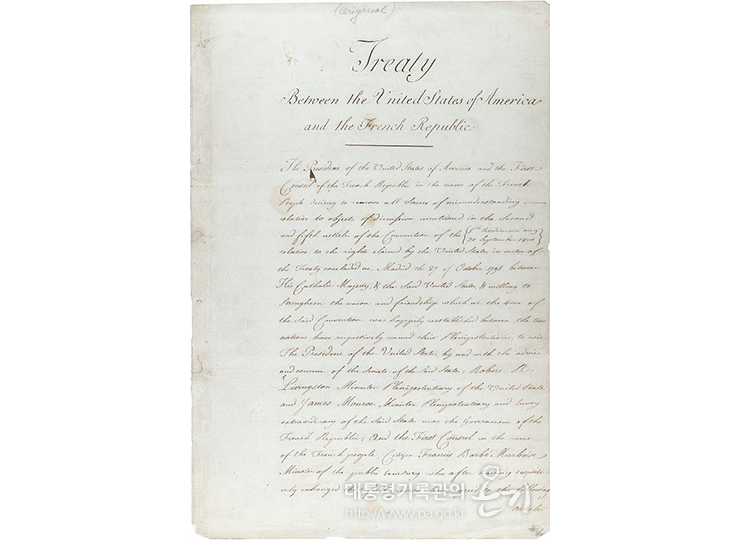 (Original)
Treaty
Between the United States of America
and the French Republic
The President of the United States of America and the First
Consul of the French Republic in the name of the French
People desiring to remove all Source of misunderstanding
relative to objects of discussion mentioned in the Second
and fifth articles of the Convention of the
30 September 1800
relative to the rights claimed by the United States in virtue of
the Treaty concluded at Madrid the 27 of October 1795 between
His Catholic Majesty, & the Said United States, & willing to
Strengthen the union and friendship which at the time of
the Said Convention was happily reestablished between the two
nations have respectively named their Plenipotentiaries to wit
The President of the United States, by and with the advice
and consent of the Senate of the Said States; Robert R.
Livingston Minister Plenipotentiary of the United States
and James Monroe Minister Plenipotentiary and Envoy
extraordinary of the Said States near the Government of the
French Republic; And the First Consul in the name
of the French people, Citizen Francis Barbé Marbois
Minister of the public treasury who after having respecti
vely exchanged their full powers have agreed to the following
articles
대통령기록관의 온기
http://www.pa.go.kr